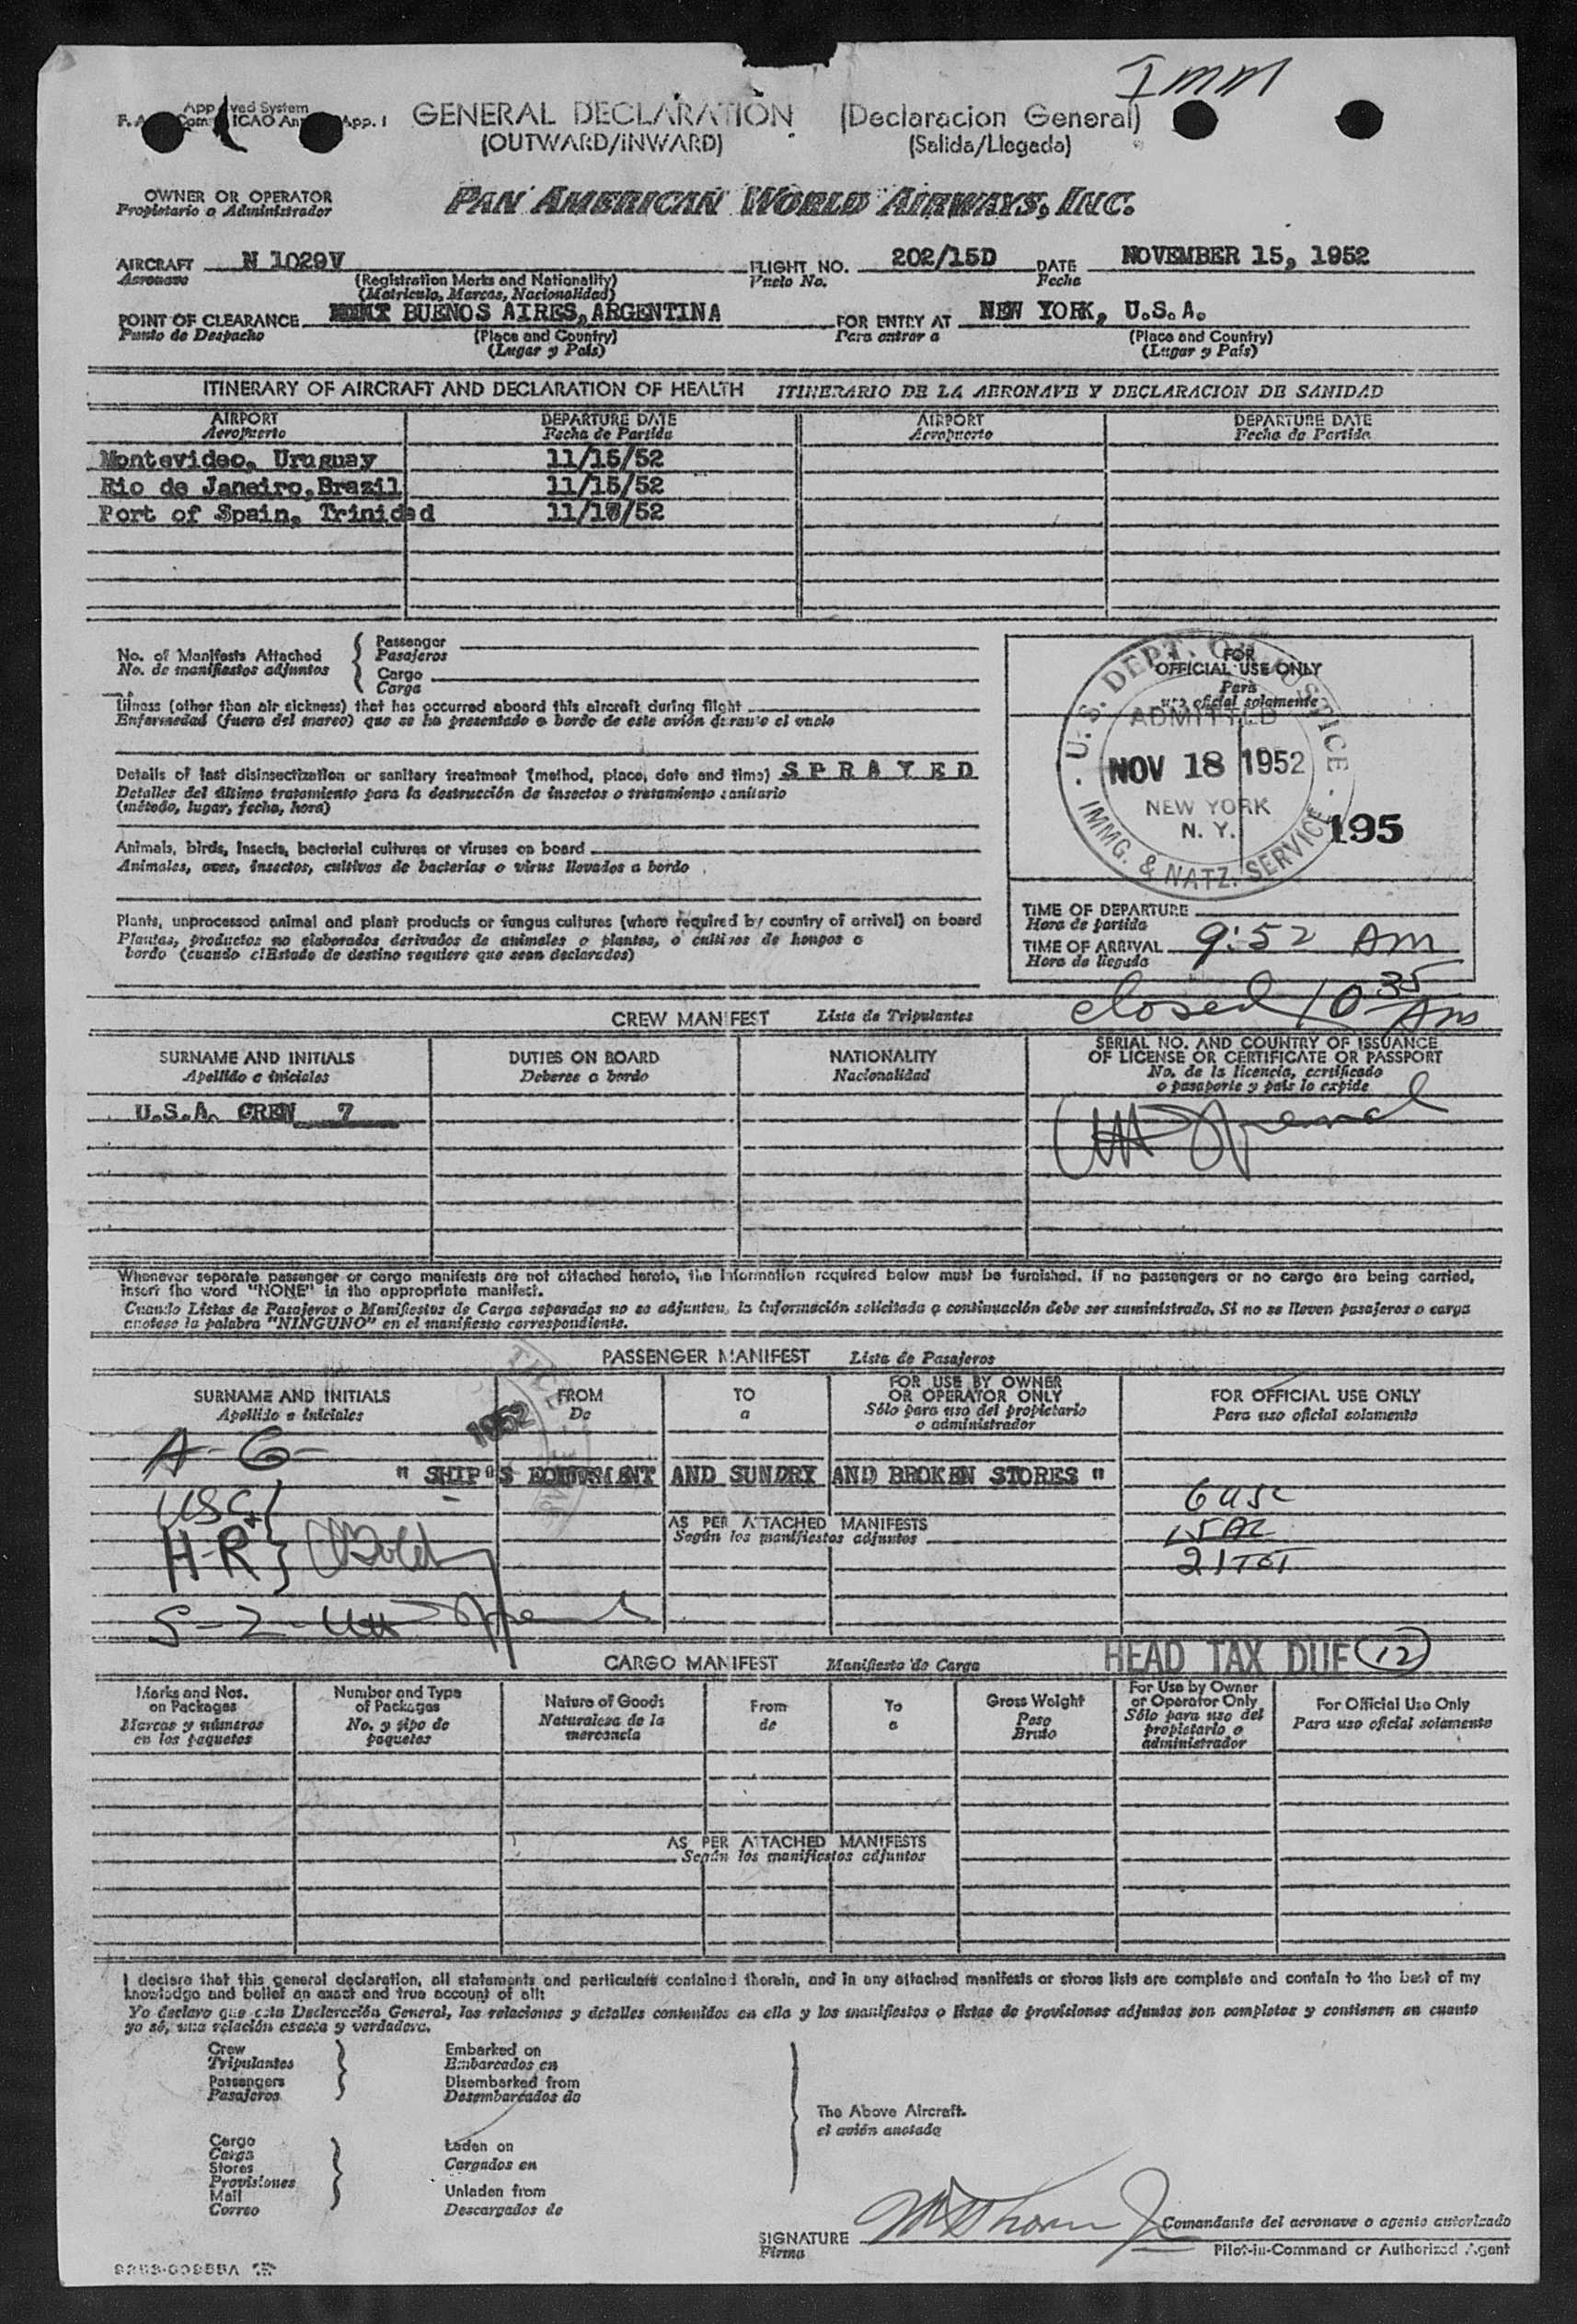 Imm
Approved System
GENERAL DECLARATION (Declaracion General)
(OUTWARD/INWARD) (Salida/Llegada)
OWNER OR OPERATOR
Propietario o Administrador
PAN AMERICAN WORLD AIRWAYS, INC.
AIRCRAFT N 1029V FLIGHT NO. 202/15D DATE NOVEMBER 15, 1952
Aeronave (Registration Marks and Nationality) Vuelo No. Fecha
(Matricula, Marcas, Nacionalidad)
POINT OF CLEARANCE BUENOS AIRES, ARGENTINA FOR ENTRY AT NEW YORK, U.S.A.
Punto de Despacho (Place and Country) Para entrar a (Place and Country)
(Lugar y País) (Lugar y País)
ITINERARY OF AIRCRAFT AND DECLARATION OF HEALTH ITINERARIO DE LA AERONAVE Y DECLARACION DE SANIDAD
AIRPORT DEPARTURE DATE AIRPORT DEPARTURE DATE
Aeropuerto Fecha de Partida Aeropuerto Fecha de Partida
Montevideo, Uruguay 11/15/52
Rio de Janeiro, Brazil 11/15/52
Port of Spain, Trinidad
No. of Manifests Attached Passenger
No. de manifiestos adjuntos Pasajeros
Cargo
Carga
Illness (other than air sickness) that has occurred aboard this aircraft during flight
Enfermedad (fuera del mareo) que se ha presentado a bordo de este avión durante el vuelo
Details of last disinsectization or sanitary treatment (method, place, date and time) SPRAYED
Detalles del último tratamiento para la destrucción de insectos o tratamiento sanitario
(método, lugar, fecha, hora)
Animals, birds, insects, bacterial cultures or viruses on board
Animales, aves, insectos, cultivos de bacterias o virus llevados a bordo
Plants, unprocessed animal and plant products or fungus cultures (where required by country of arrival) on board
Plantas, productos no elaborados derivados de animales o plantas, o cultivos de hongos a
bordo (cuando el Estado de destino requiere que sean declarados)
FOR
OFFICIAL USE ONLY
Para
uso oficial solamente
U.S. DEPT. OF JUSTICE
ADMITTED
NOV 18 1952
NEW YORK
N. Y.
IMMG. & NATZ. SERVICE
195
TIME OF DEPARTURE
Hora de partida
TIME OF ARRIVAL 9:52 Am
Hora de llegada
closed 10 35 Am
CREW MANIFEST Lista de Tripulantes
SURNAME AND INITIALS DUTIES ON BOARD NATIONALITY SERIAL NO. AND COUNTRY OF ISSUANCE
OF LICENSE OR CERTIFICATE OR PASSPORT
Apellido e iniciales Deberes a bordo Nacionalidad No. de la licencia, certificado
o pasaporte y país lo expide
U.S.A. CREW 7
Whenever separate passenger or cargo manifests are not attached hereto, the information required below must be furnished. If no passengers or no cargo are being carried,
insert the word "NONE" in the appropriate manifest.
Cuando Listas de Pasajeros o Manifiestos de Carga separados no se adjunten, la información solicitada a continuación debe ser suministrada. Si no se lleven pasajeros o carga
anotese la palabra "NINGUNO" en el manifiesto correspondiente.
PASSENGER MANIFEST Lista de Pasajeros
SURNAME AND INITIALS FROM TO FOR USE BY OWNER
OR OPERATOR ONLY FOR OFFICIAL USE ONLY
Apellido e iniciales De a Sólo para uso del propietario
o administrador Para uso oficial solamente
1952
A-G-
" SHIP'S EQUIPMENT AND SUNDRY AND BROKEN STORES "
USC
H-R
6 USC
15 AL
21 TOT
AS PER ATTACHED MANIFESTS
Según los manifiestos adjuntos
S-Z
CARGO MANIFEST Manifiesto de Carga HEAD TAX DUE 12
Marks and Nos.
on Packages Number and Type
of Packages Nature of Goods From To Gross Weight For Use by Owner
or Operator Only For Official Use Only
Marcas y números
en los paquetes No. y tipo de
paquetes Naturaleza de la
mercancía de a Peso
Bruto Sólo para uso del
propietario o
administrador Para uso oficial solamente
AS PER ATTACHED MANIFESTS
Según los manifiestos adjuntos
I declare that this general declaration, all statements and particulars contained therein, and in any attached manifests or stores lists are complete and contain to the best of my
knowledge and belief an exact and true account of all:
Yo declaro que esta Declaración General, las relaciones y detalles contenidos en ella y los manifiestos o listas de provisiones adjuntos son completos y contienen en cuanto
yo sé, una relación exacta y verdadera.
Crew Embarked on
Tripulantes Embarcados en
Passengers Disembarked from
Pasajeros Desembarcados de
The Above Aircraft.
el avión anotado
Cargo Laden on
Carga Cargados en
Stores
Provisiones
Mail Unladen from
Correo Descargados de
SIGNATURE
Firma
Comandante del aeronave o agente autorizado
Pilot-in-Command or Authorized Agent